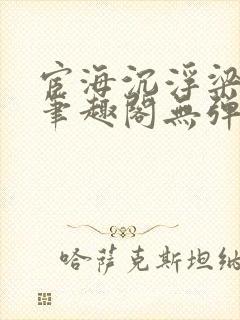 宦海沉浮梁
笔趣阁無弹
哈萨克斯坦纳